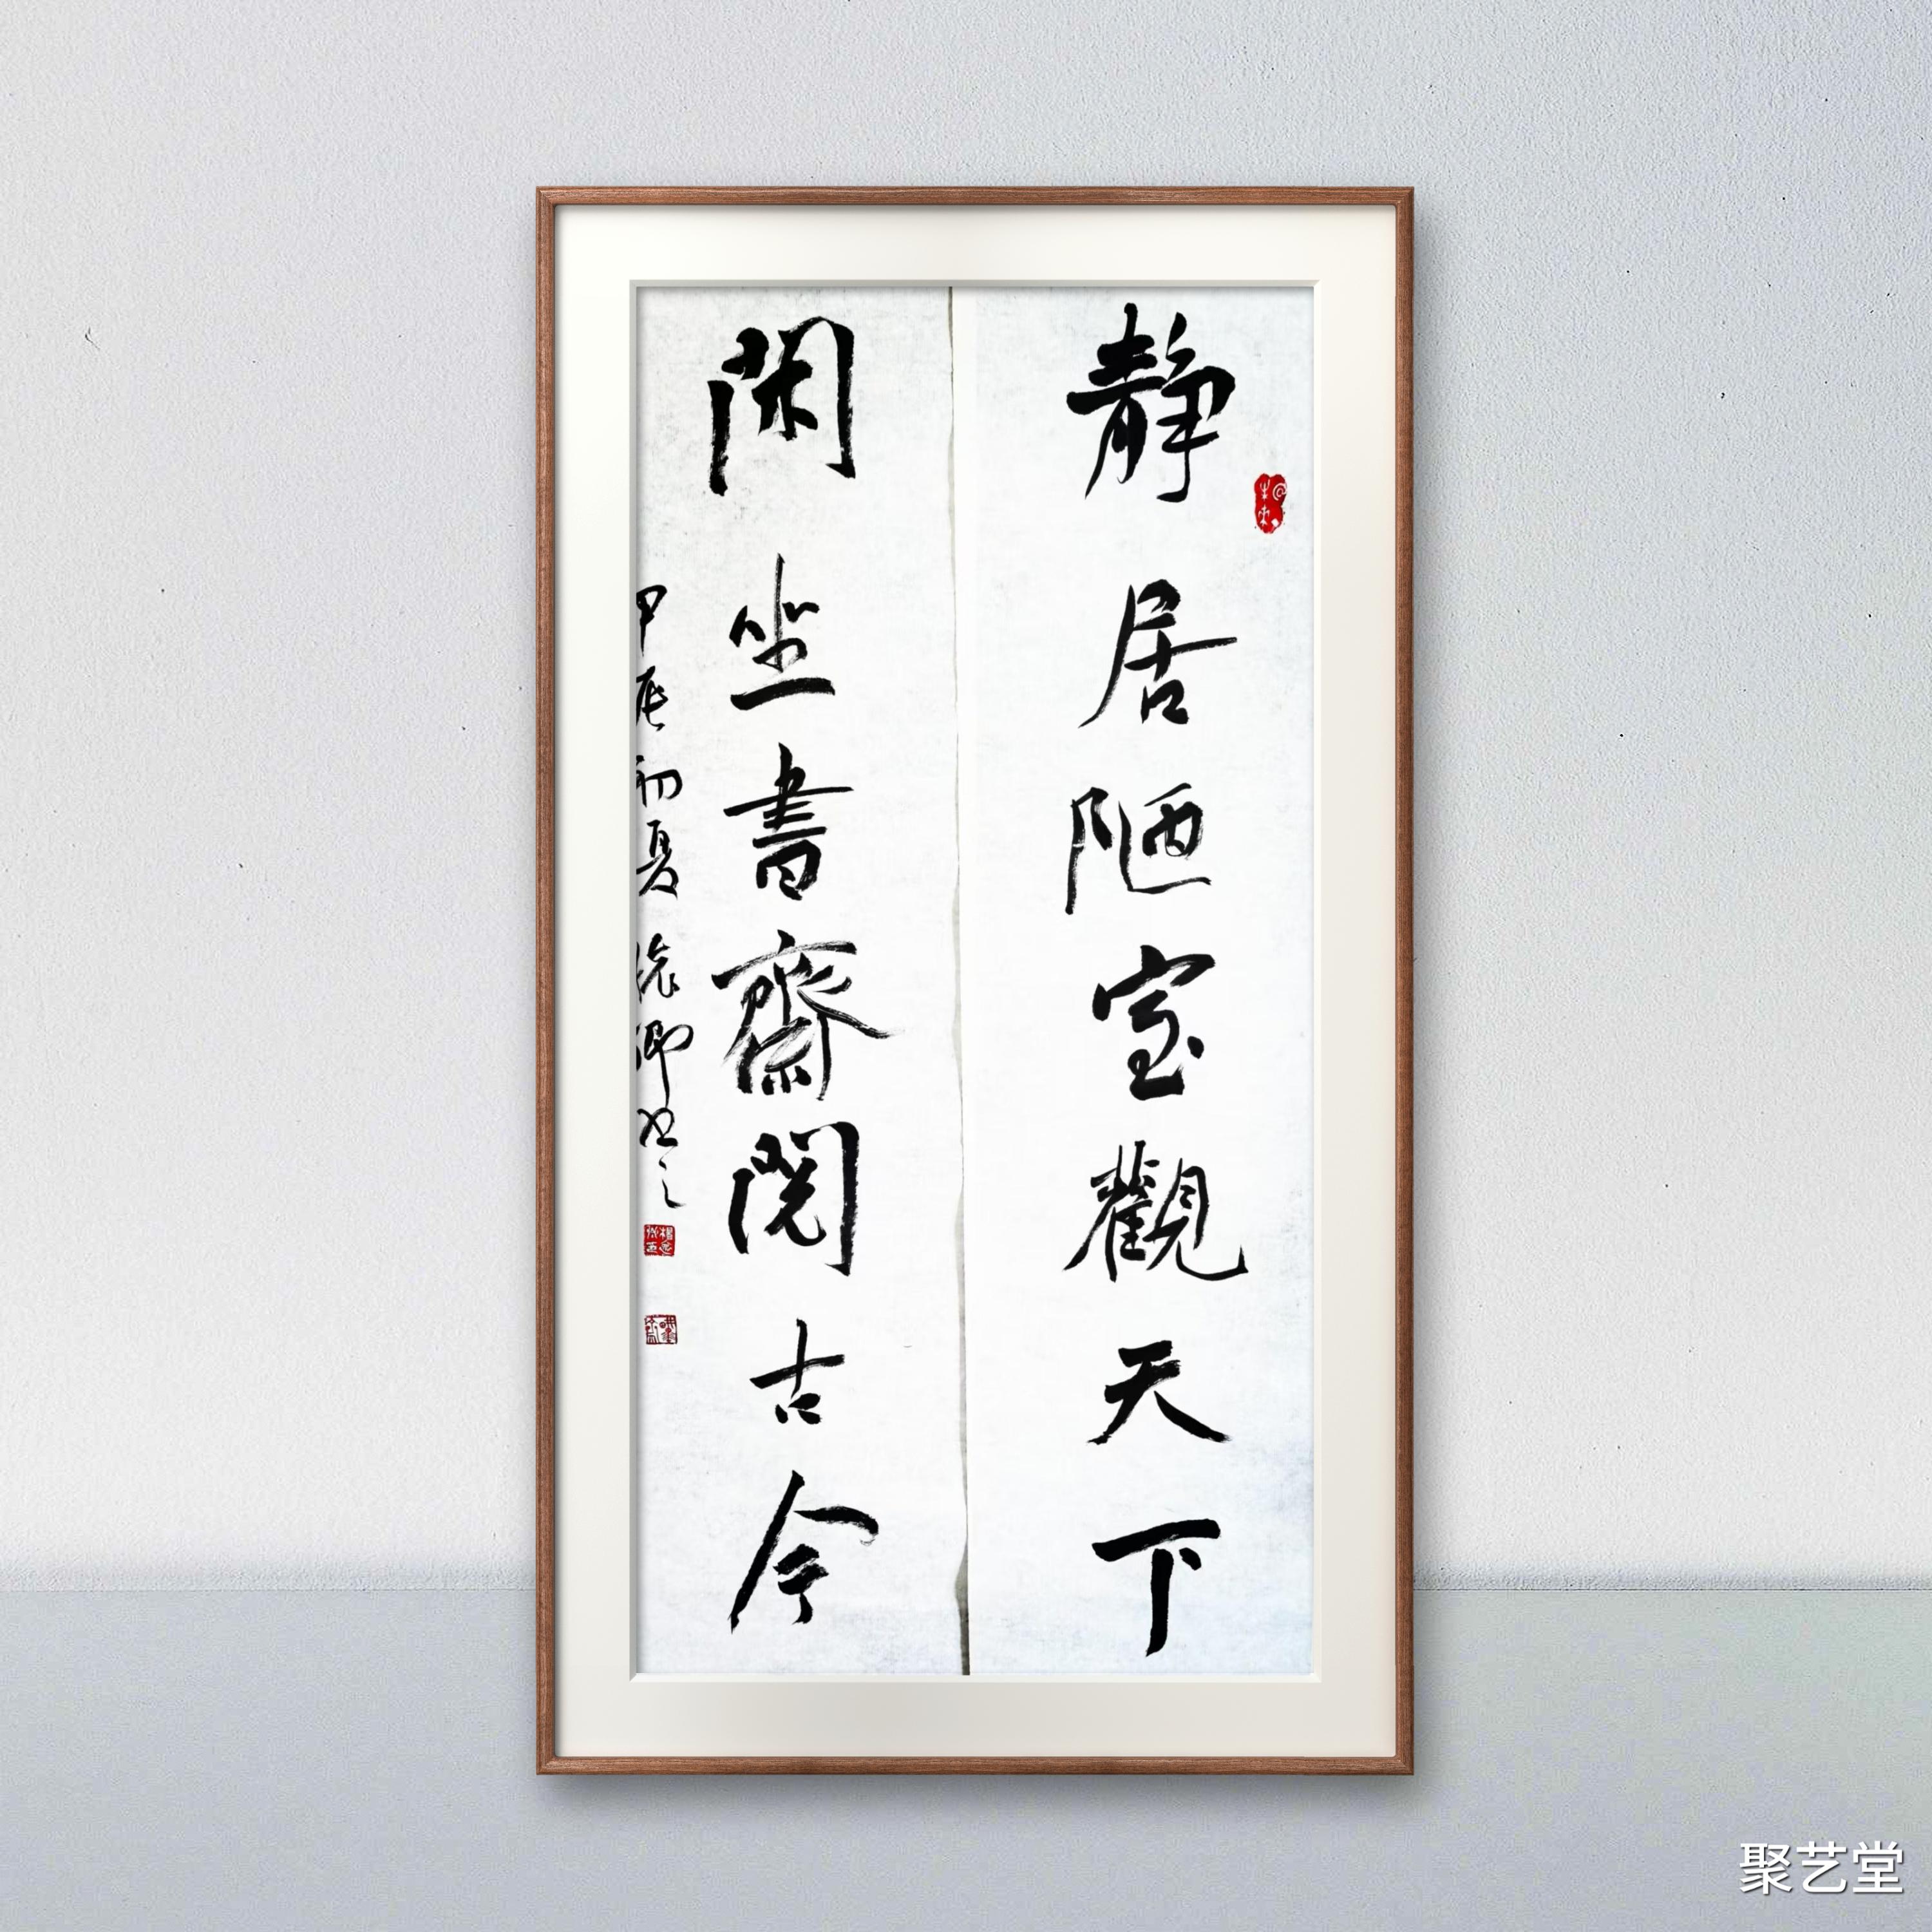 静居陋室觀天下
閑坐書齋閱古今
甲辰初夏
聚艺堂